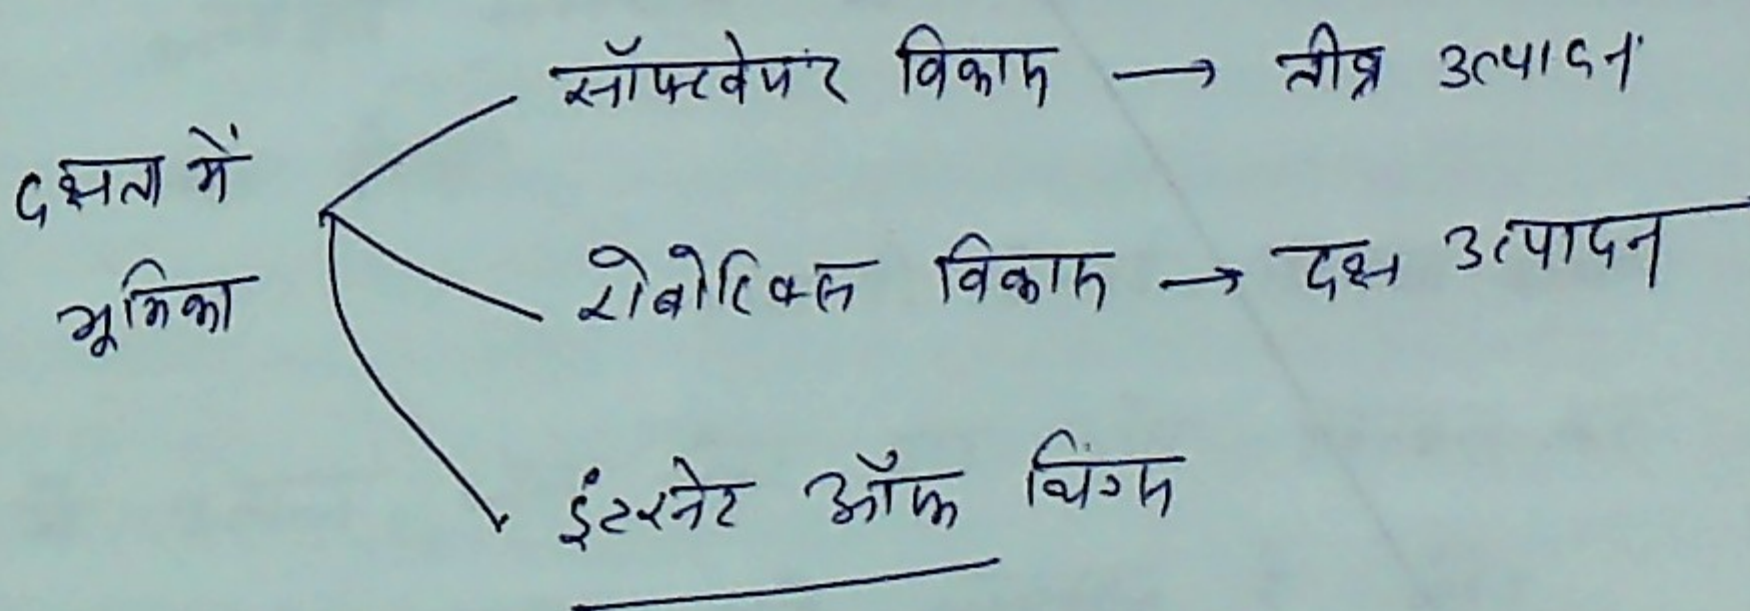 दक्षता में
भूमिका
सॉफ्टवेयर विकास → तीव्र उत्पादन
रोबोटिक्स विकास → दक्ष उत्पादन
इंटरनेट ऑफ थिंग्स